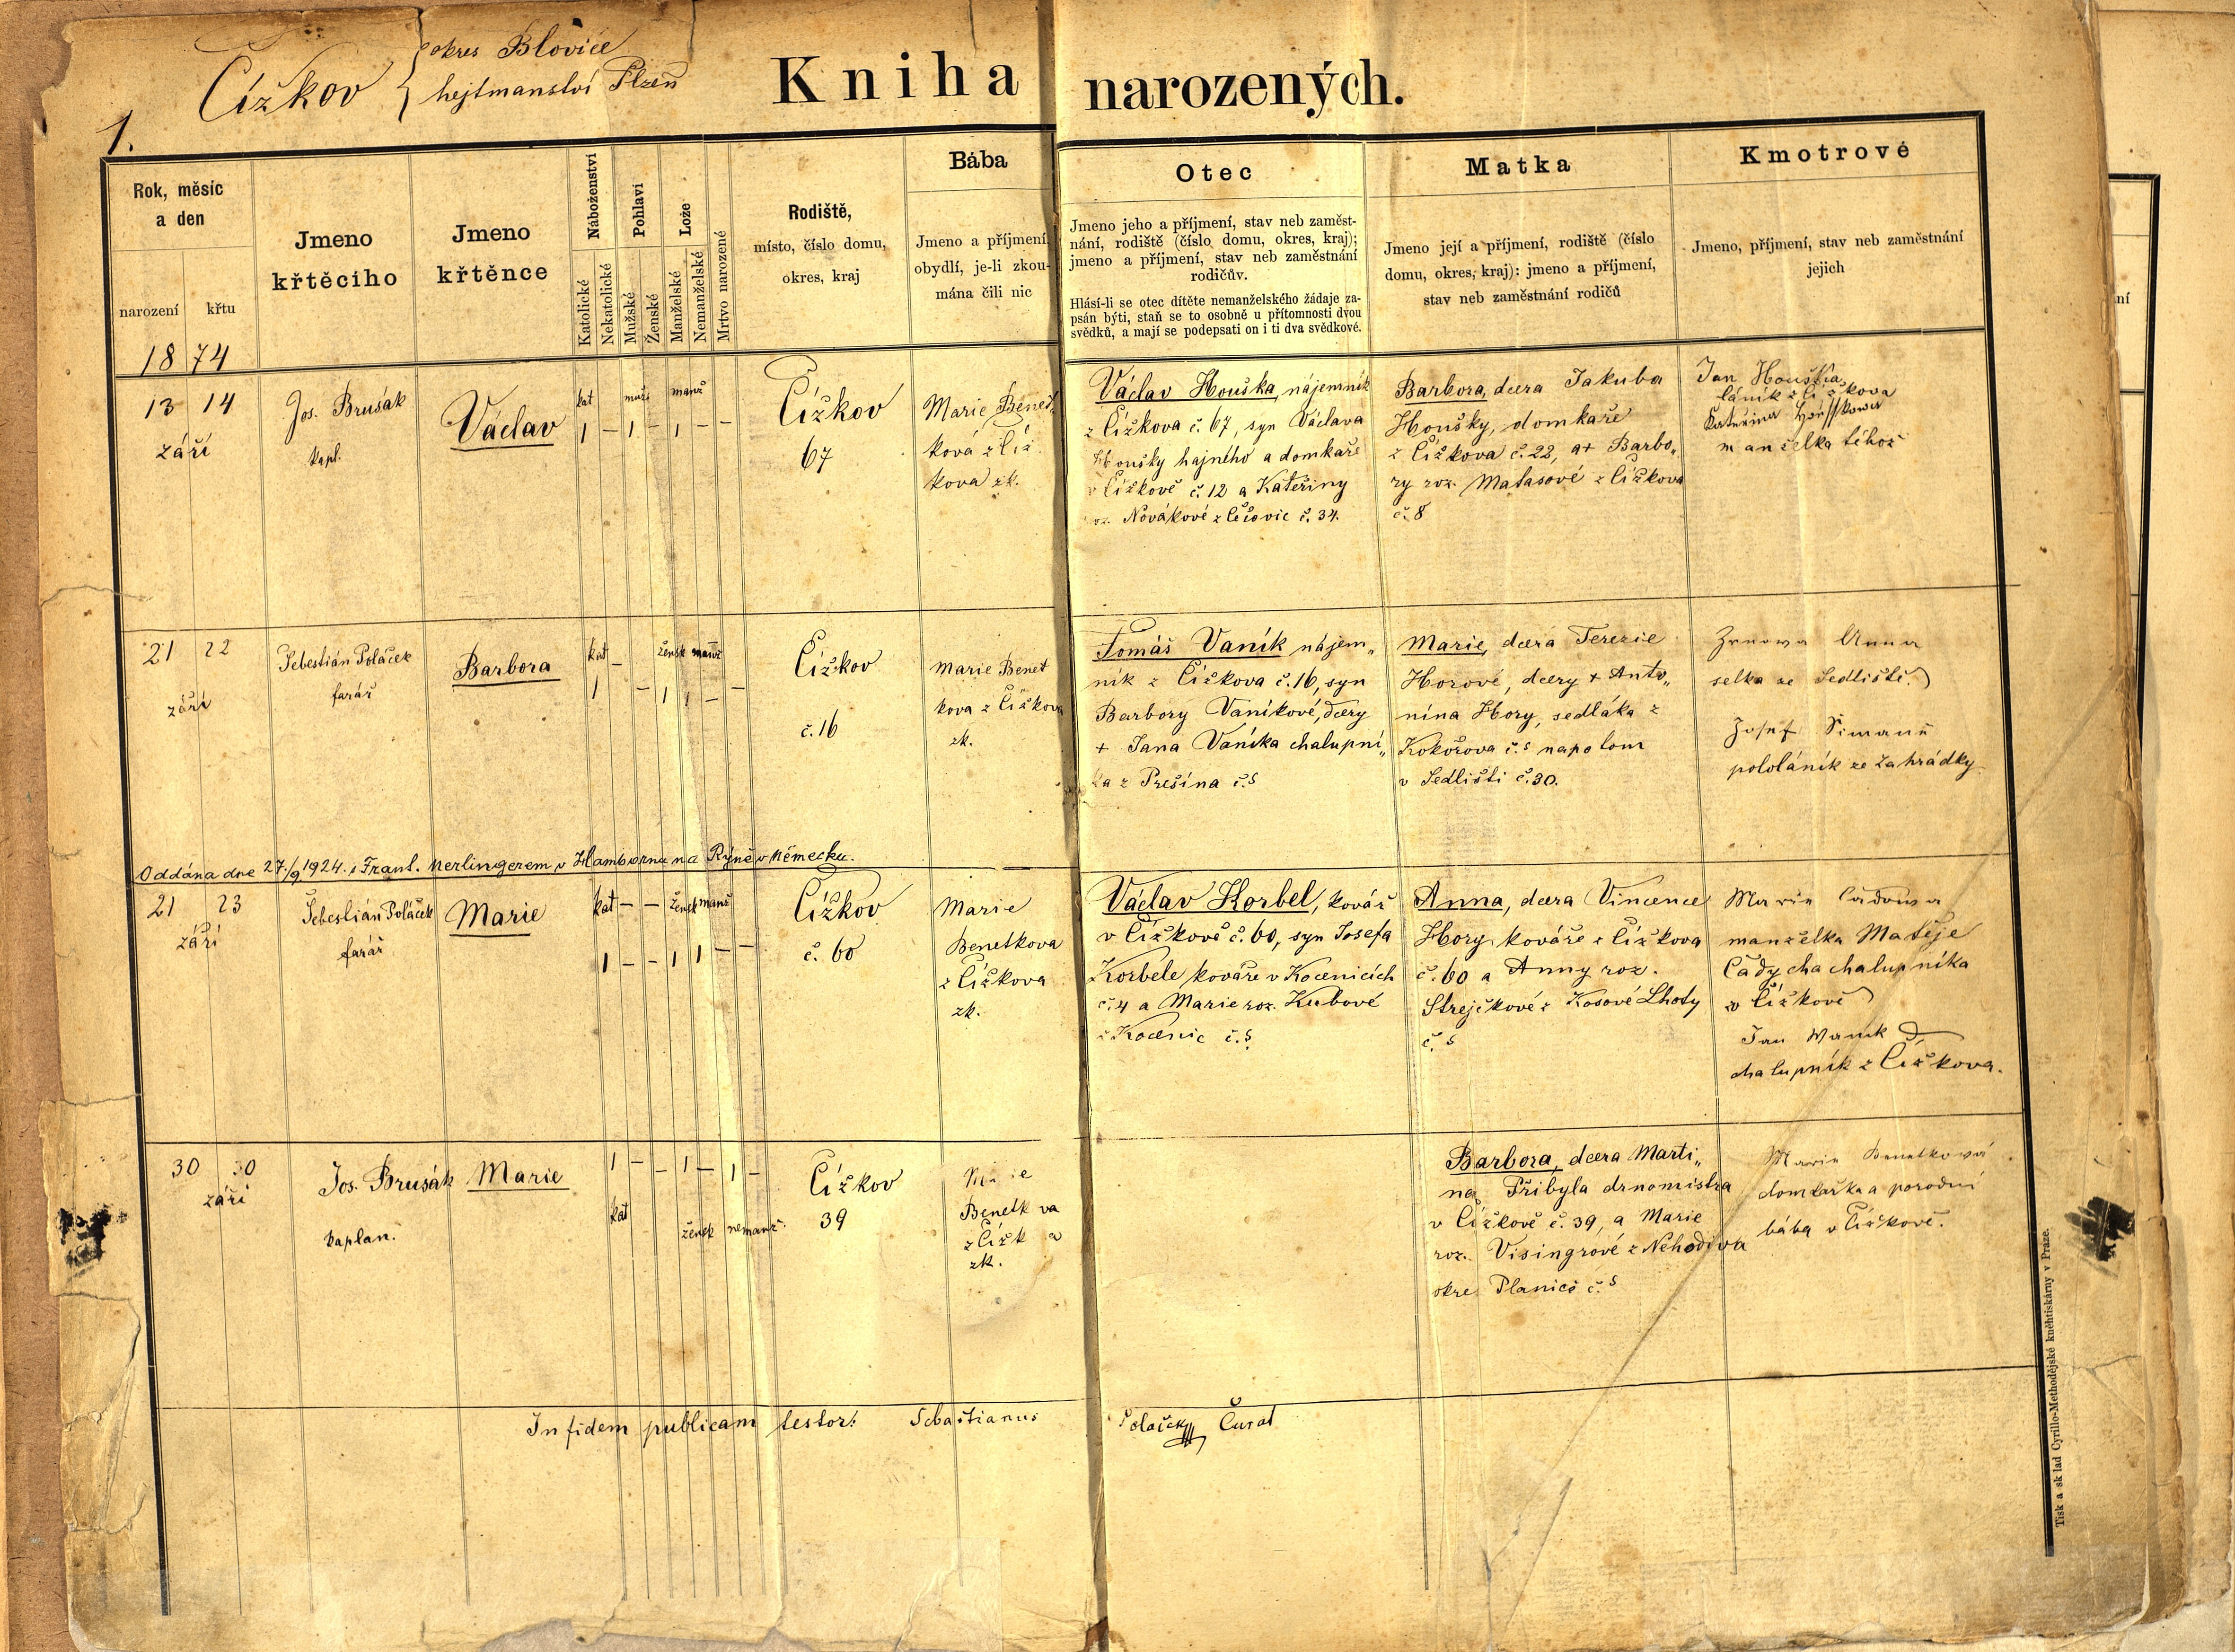 okres Blovice
Čížkov { hejtmanství Plzeň
Kniha narozených.
1.
Rok, měsíc a den
narození
křtu
Jmeno křtěcího
Jmeno křtěnce
Náboženství
Katolické
Nekatolické
Pohlaví
Mužské
Ženské
Lože
Manželské
Nemanželské
Mrtvo narozené
Rodiště,
místo, číslo domu,
okres, kraj
Bába
Jmeno a příjmení,
obydlí, je-li zkou-
mána čili nic
Otec
Jmeno jeho a příjmení, stav neb zaměst-
nání, rodiště (číslo domu, okres, kraj);
jmeno a příjmení, stav neb zaměstnání
rodičův.
Hlásí-li se otec dítěte nemanželského žádaje za-
psán býti, staň se to osobně u přítomnosti dvou
svědků, a mají se podepsati on i ti dva svědkové.
Matka
Jmeno její a příjmení, rodiště (číslo
domu, okres, kraj): jmeno a příjmení,
stav neb zaměstnání rodičů
Kmotrové
Jmeno, příjmení, stav neb zaměstnání
jejich
1874
13 14
září
Jos. Brusák
kapl.
Václav
kat muž. manž
1 – 1 – 1 – –
Čížkov
67
Marie Benet
ková z Číž
kova zk.
Václav Houška, nájemník
z Čížkova č. 67, syn Václava
Houšky hajného a domkaře
v Čížkově č. 12 a Kateřiny
roz. Novákové z Čečovic č. 34.
Barbora, dcera Jakuba
Houšky, domkaře
z Čížkova č. 22, a + Barbo„
ry roz. Matasové z Čížkova
č. 8
Jan Houška,
láník z Čížkova
Kateřina Houškowa
manželka téhož
21 22
září
Šebestián Poláček
farář
Barbora
kat – žensk manž
1 – 1 1 – –
Čížkov
č. 16
Marie Benet
kova z Čížkova
zk.
Tomáš Vaník nájem„
ník z Čížkova č. 16, syn
Barbory Vaníkové, dcery
+ Jana Vaníka chalupní„
ka z Přešína č. 5
Marie, dcera Terezie
Horové, dcery + Anto„
nína Hory, sedláka z
Kokořova č. 5 napotom
v Sedlišti č. 30.
Anna
selka ze Sedliště.
Josef Šimaně
pololáník ze Zahrádky
Oddána dne 27./9 1924. s Frant. Nerlingerem v Hambornu na Rýně v Německu.
21 23
září
Šebestián Poláček
farář
Marie
kat – – žensk manž
1 – – 1 1 – –
Čížkov
č. 60
Marie
Benetkova
z Čížkova
zk.
Václav Korbel, kovář
v Čížkově č. 60, syn Josefa
Korbele kováře v Kocenicích
č. 4 a Marie roz. Kubové
z Kocenic č. 5
Anna, dcera Vincence
Hory kováře z Čížkova
č. 60 a Anny roz.
Strejčkové z Kosové Lhoty
č. 5
Marie Čadowa
manželka Matěje
Čády chalupníka
v Čížkově
Jan Wanik
chalupník z Čížkova.
30 30
září
Jos. Brusák
kaplan.
Marie
1 – – 1 – 1 –
kat žensk nemanž.
Čížkov
39
Marie
Benetk va
z Čížk a
zk.
Barbora, dcera Marti„
na Přibyla drnomistra
v Čížkově č. 39, a Marie
roz. Visingrové z Nehodiva
okre. Planice č. 5
Marie Benetková
domkařka a porodní
bába v Čížkově.
In fidem publicam testor: Sebastianus Polaček Curat
Tisk a sklad Cyrillo-Methodějské kněhtiskárny v Praze.